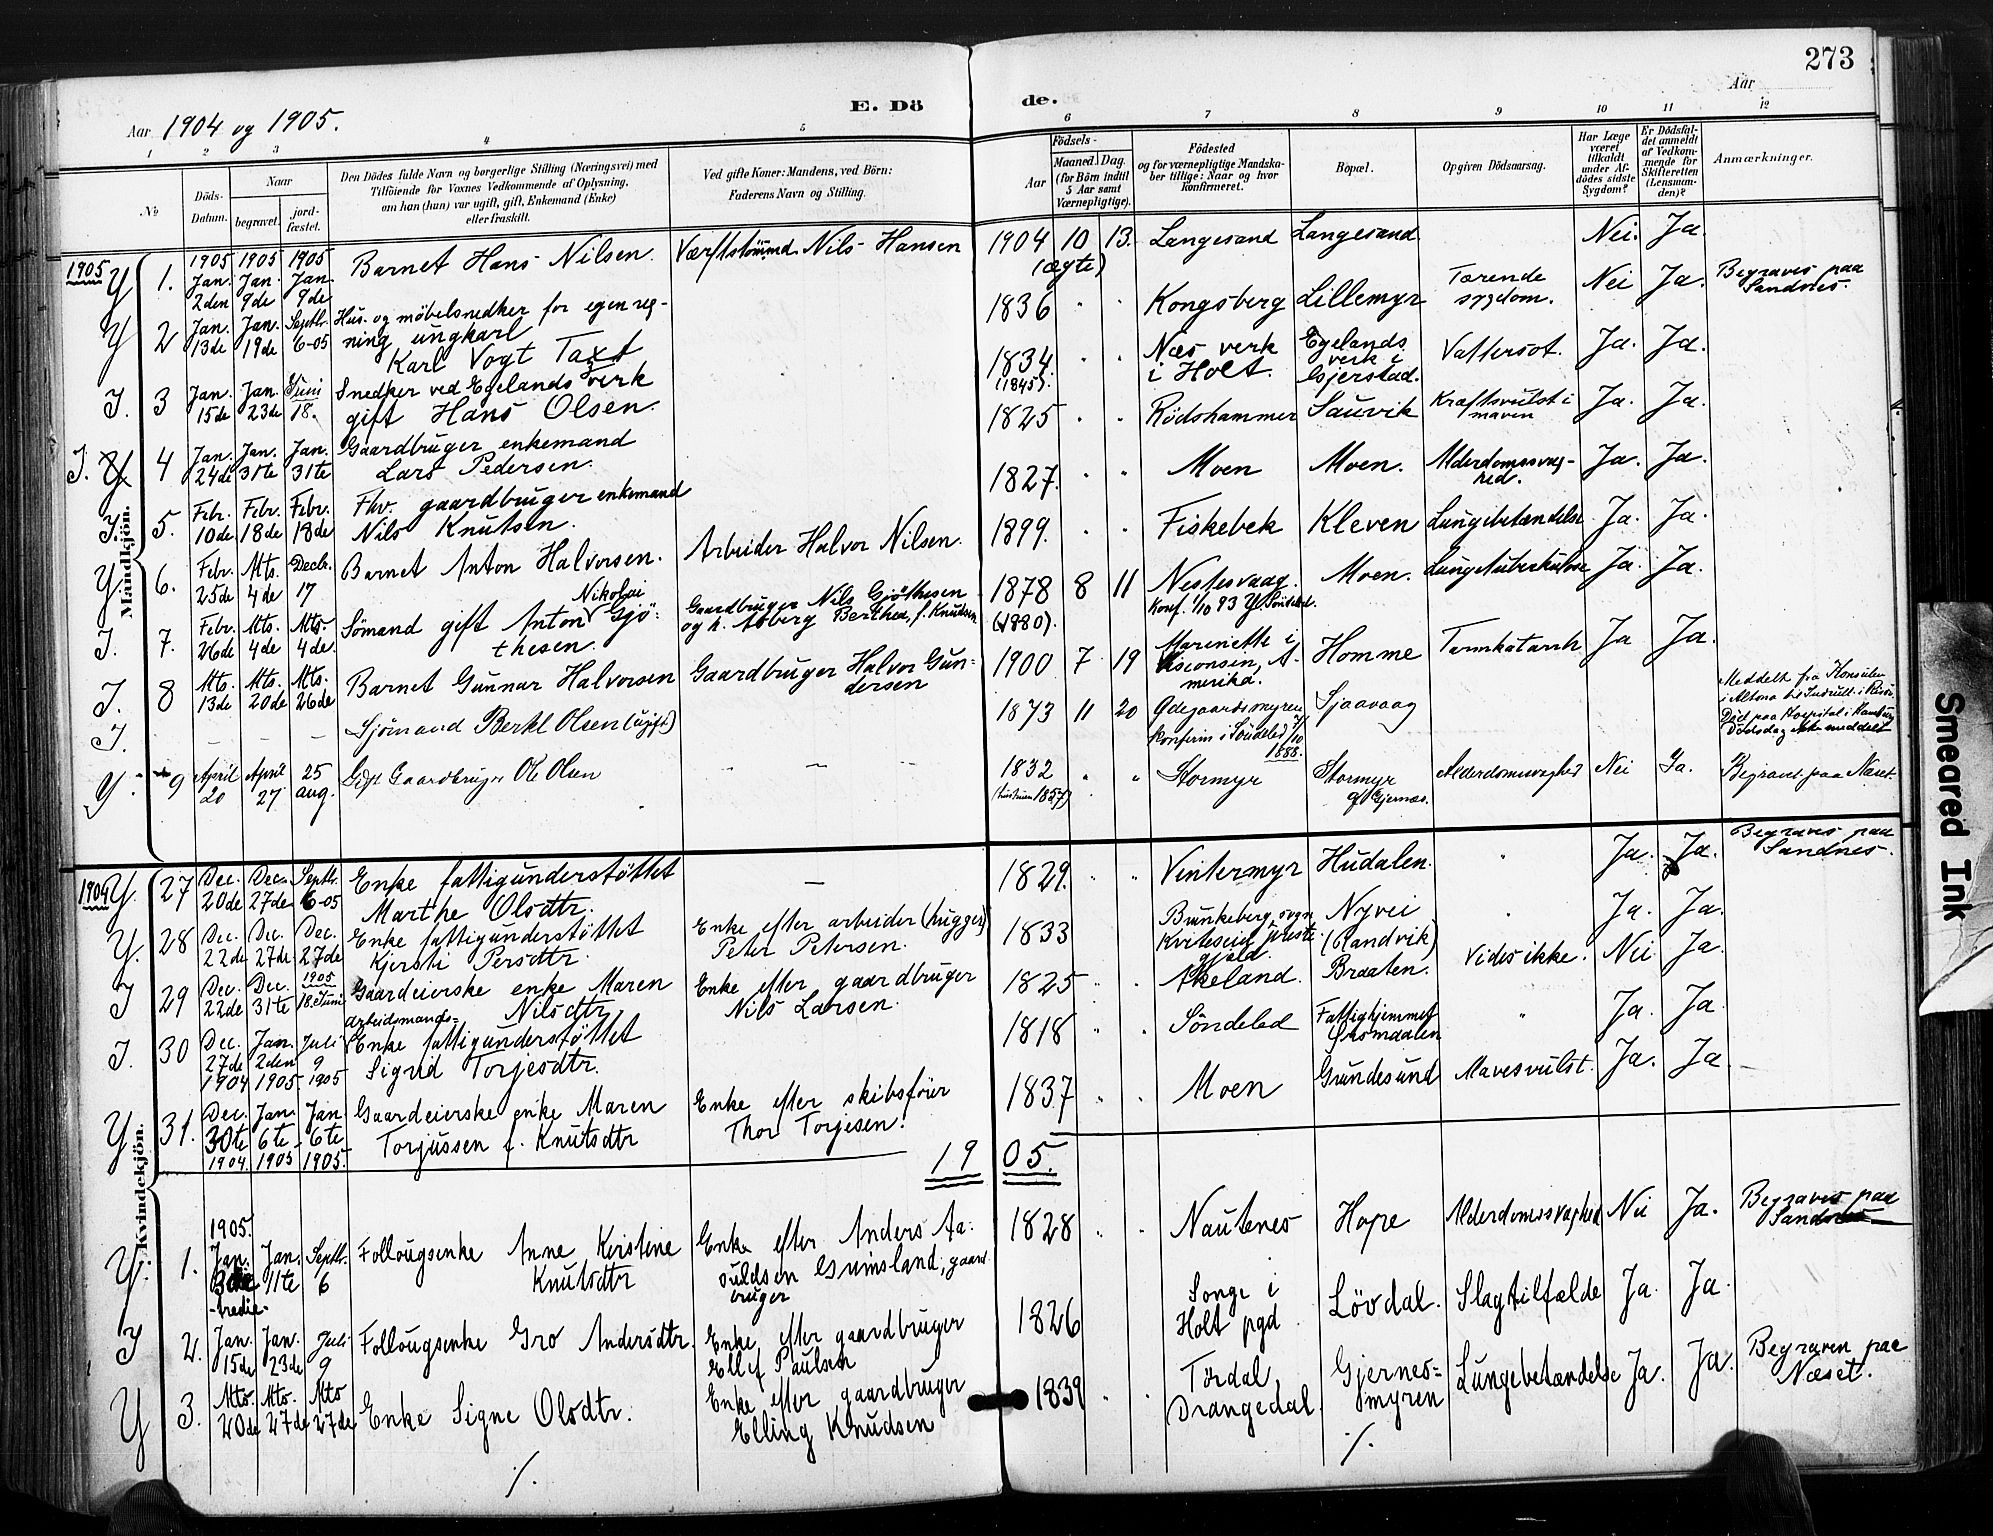 273
Aar 1904 og 1905.
E. Dö de.
Aar
1 2 3 4 5 6 7 8 9 10 11 12
№
Döds-Datum.
Naar
begravet.
jord-fæstet.
Den Dödes fulde Navn og borgerlige Stilling (Næringsvei) med
Tilföiende for Voxnes Vedkommende af Oplysning,
om han (hun) var ugift, gift, Enkemand (Enke)
eller fraskilt.
Ved gifte Koner: Mandens, ved Börn:
Faderens Navn og Stilling.
Födsels-
Aar
Maaned. Dag.
(for Börn indtil
5 Aar samt
Værnepligtige).
Födested
og for værnepligtige Mandska-
ber tillige: Naar og hvor
konfirmeret.
Bopæl.
Opgiven Dödsaarsag.
Har Læge
været
tilkaldt
under Af-
dödes sidste
Sygdom?
Er Dödsfal-
det anmeldt
af Vedkom-
mende for
Skifteretten
(Lensman-
den)?
Anmærkninger.
Mandkjön.
1905 Y 1. 1905 Jan. 2den 1905 Jan. 9de 1905 Jan. 9de Barnet Hans Nilsen. Nils Hansen 1904 10 13. Langesand Langesand. Nei. Ja.
(ægte)
Y 2 Jan. 13de Jan. 19de Septbr. 6-05 Hus- og möbelsnedker for egen reg-
ning ungkarl
Karl Vogt Taxt
1836 " " Kongsberg Lillemyr Tærende sygdom. Nei Ja. Begraves paa Sandnes.
I. 3 Jan. 15de Jan. 23de Juni 18. Snedker ved Egelands verk
gift Hans Olsen.
1834. (1845). " " Næs verk i Holt. Egelands verk i Gjerstad. Vattersot. Ja. Ja.
I. Y 4 Jan. 24de Jan. 31te Jan. 31te Gaardbruger enkemand
Lars Pedersen.
1825 " " Rödshammer Sauvik Kræftsvulst i maven Ja. Ja.
I. 5. Febr. 10de Febr. 18de Febr. 18de Fhv. gaardbruger enkemand
Nils Knutsen.
1827. " " Moen Moen. Alderdomssvag-hed. Ja. Ja.
Y 6. Febr. 25de Mts. 4de Decbr. 17 Barnet Anton Halvorsen. Arbeider Halvor Nilsen. 1899. " " Fiskebek Kleven Lungebetændelse Ja. Ja.
I. 7. Febr. 26de Mts. 4de Mts. 4de. Sömand gift Anton Nikolai Gjö-
thesen.
Gaardbruger Nils Gjöthesen
og h. Berthea, f. Knutsen
1878 (1880). 8 11 Nestesvaag. Konf. 1/10 93 Moen. Lungetuberkulose Ja. Ja.
I. 8 Mts. 13de Mts. 20de Mts. 26de Barnet Gunnar Halvorsen Gaardbruger Halvor Gun-
dersen
1900 7 19 Marinette i Wisconsin, A-merika. Homme Tarmkatarrh Ja Ja.
I. – – – Sjömand Bertel Olsen (ugift) 1873 11 20 Ödegaardsmyren konfirm i Söndeled 7/10 1888. Sjaavaag
Meddelt fra Konsulen
i Altona
Död paa Hospital i Hamburg
Dödsdag ikke meddelt
Y. 9 April 20 April 27 25 aug. Gift Gaardbruger Ole Olsen – – 1832 " " Stormyr Stormyr af Gjernæs. Alderdomssvaghed Nei Ja. Begravet paa Næset.
Kvindekjön.
1904 Y. 27 Dec. 20de Dec. 27de Septbr. 6-05 Enke fattigunderstöttet
Marthe Olsdtr.
– 1829. " " Vintermyr Hudalen. " Ja. Ja. Begraves paa Sandnes.
Y. 28 Dec. 22de Dec. 27de Dec. 27de Enke fattigunderstöttet
Kjersti Persdtr.
Enke efter arbeider (hugger)
Peter Petersen.
1833 Brunkeberg sogn Kviteseid præste-gjeld. Nyvei (Randvik) " Ja. Ja.
I 29 Dec. 22de Dec. 31te 1905 18. Juni Gaardeierske enke Maren
Nilsdtr.
Enke efter gaardbruger
Nils Larsen.
1825 " " Akeland. Braaten. Vides ikke. Nei Ja.
I. 30 Dec. 27de 1904 Jan. 2den 1905 Juli 9 1905 arbeidsmands-
Enke fattigunderstöttet
Sigrid Torjesdtr.
1818 " " Söndeled Fattighjemmet " Ja. Ja
Y 31. Dec. 30te 1904. Jan. 6te 1905 Jan 6te 1905. Gaardeierske enke Maren
Torjussen f. Knutsdtr
Enke efter skibsförer
Thor Torjesen.
1837 " " Moen Grundesund Mavesvulst. Ja. Ja
1905.
1905.
Y. 1. Jan. 3die -tredie- Jan. 11te Septbr. 6 Follougsenke Anne Kirstine
Knutsdtr
Enke efter Anders Aa-
suldsen Grimsland, gaard
bruger
1828 " " Nautenes Hope Alderdomssvaghed Nei Ja. Begraves paa Sandnes
I 2. Jan. 15de Jan. 23de Juli 9 Follougsenke Gro Andersdtr. Enke efter gaardbruger
Ellef Paulsen
1826 Songe i Holt pgd. Lövdal. Slagtilfælde Ja. Ja.
Y 3. Mts. 20de Mts. 27de Mts 27de Enke Signe Olsdtr. Enke efter gaardbruger
Elling Knudsen
1839 " " Tördal, Drangedal. Gjernes-myren Lungebetændelse Ja. Ja. Begraven paa Næset.
./.
./.
Smeared Ink